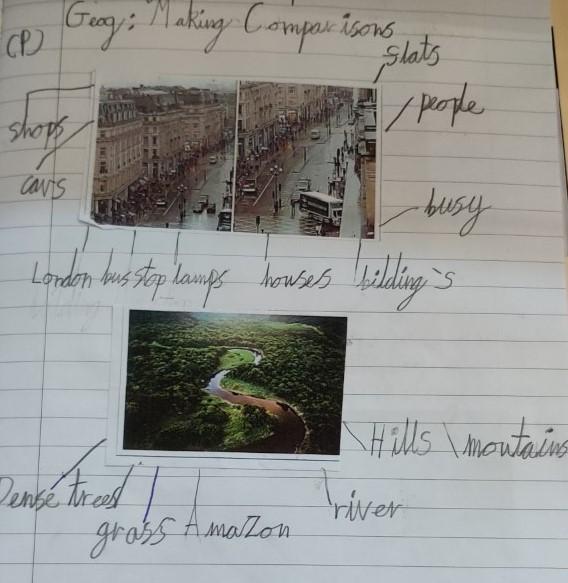 Geog: Making Comparisons
(P)
flats
people
shops
cars
busy
London bus stop lamps houses bilding's
Hills \ moutains
Dense trees
river
grass Amazon